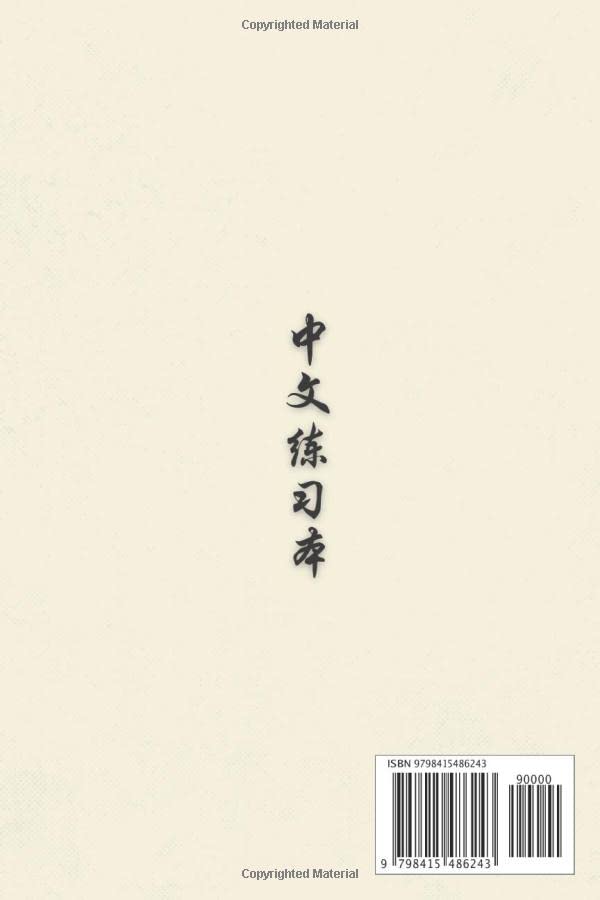 Copyrighted Material
中文练习本
ISBN 9798415486243
90000
9 798415 486243
Copyrighted Material